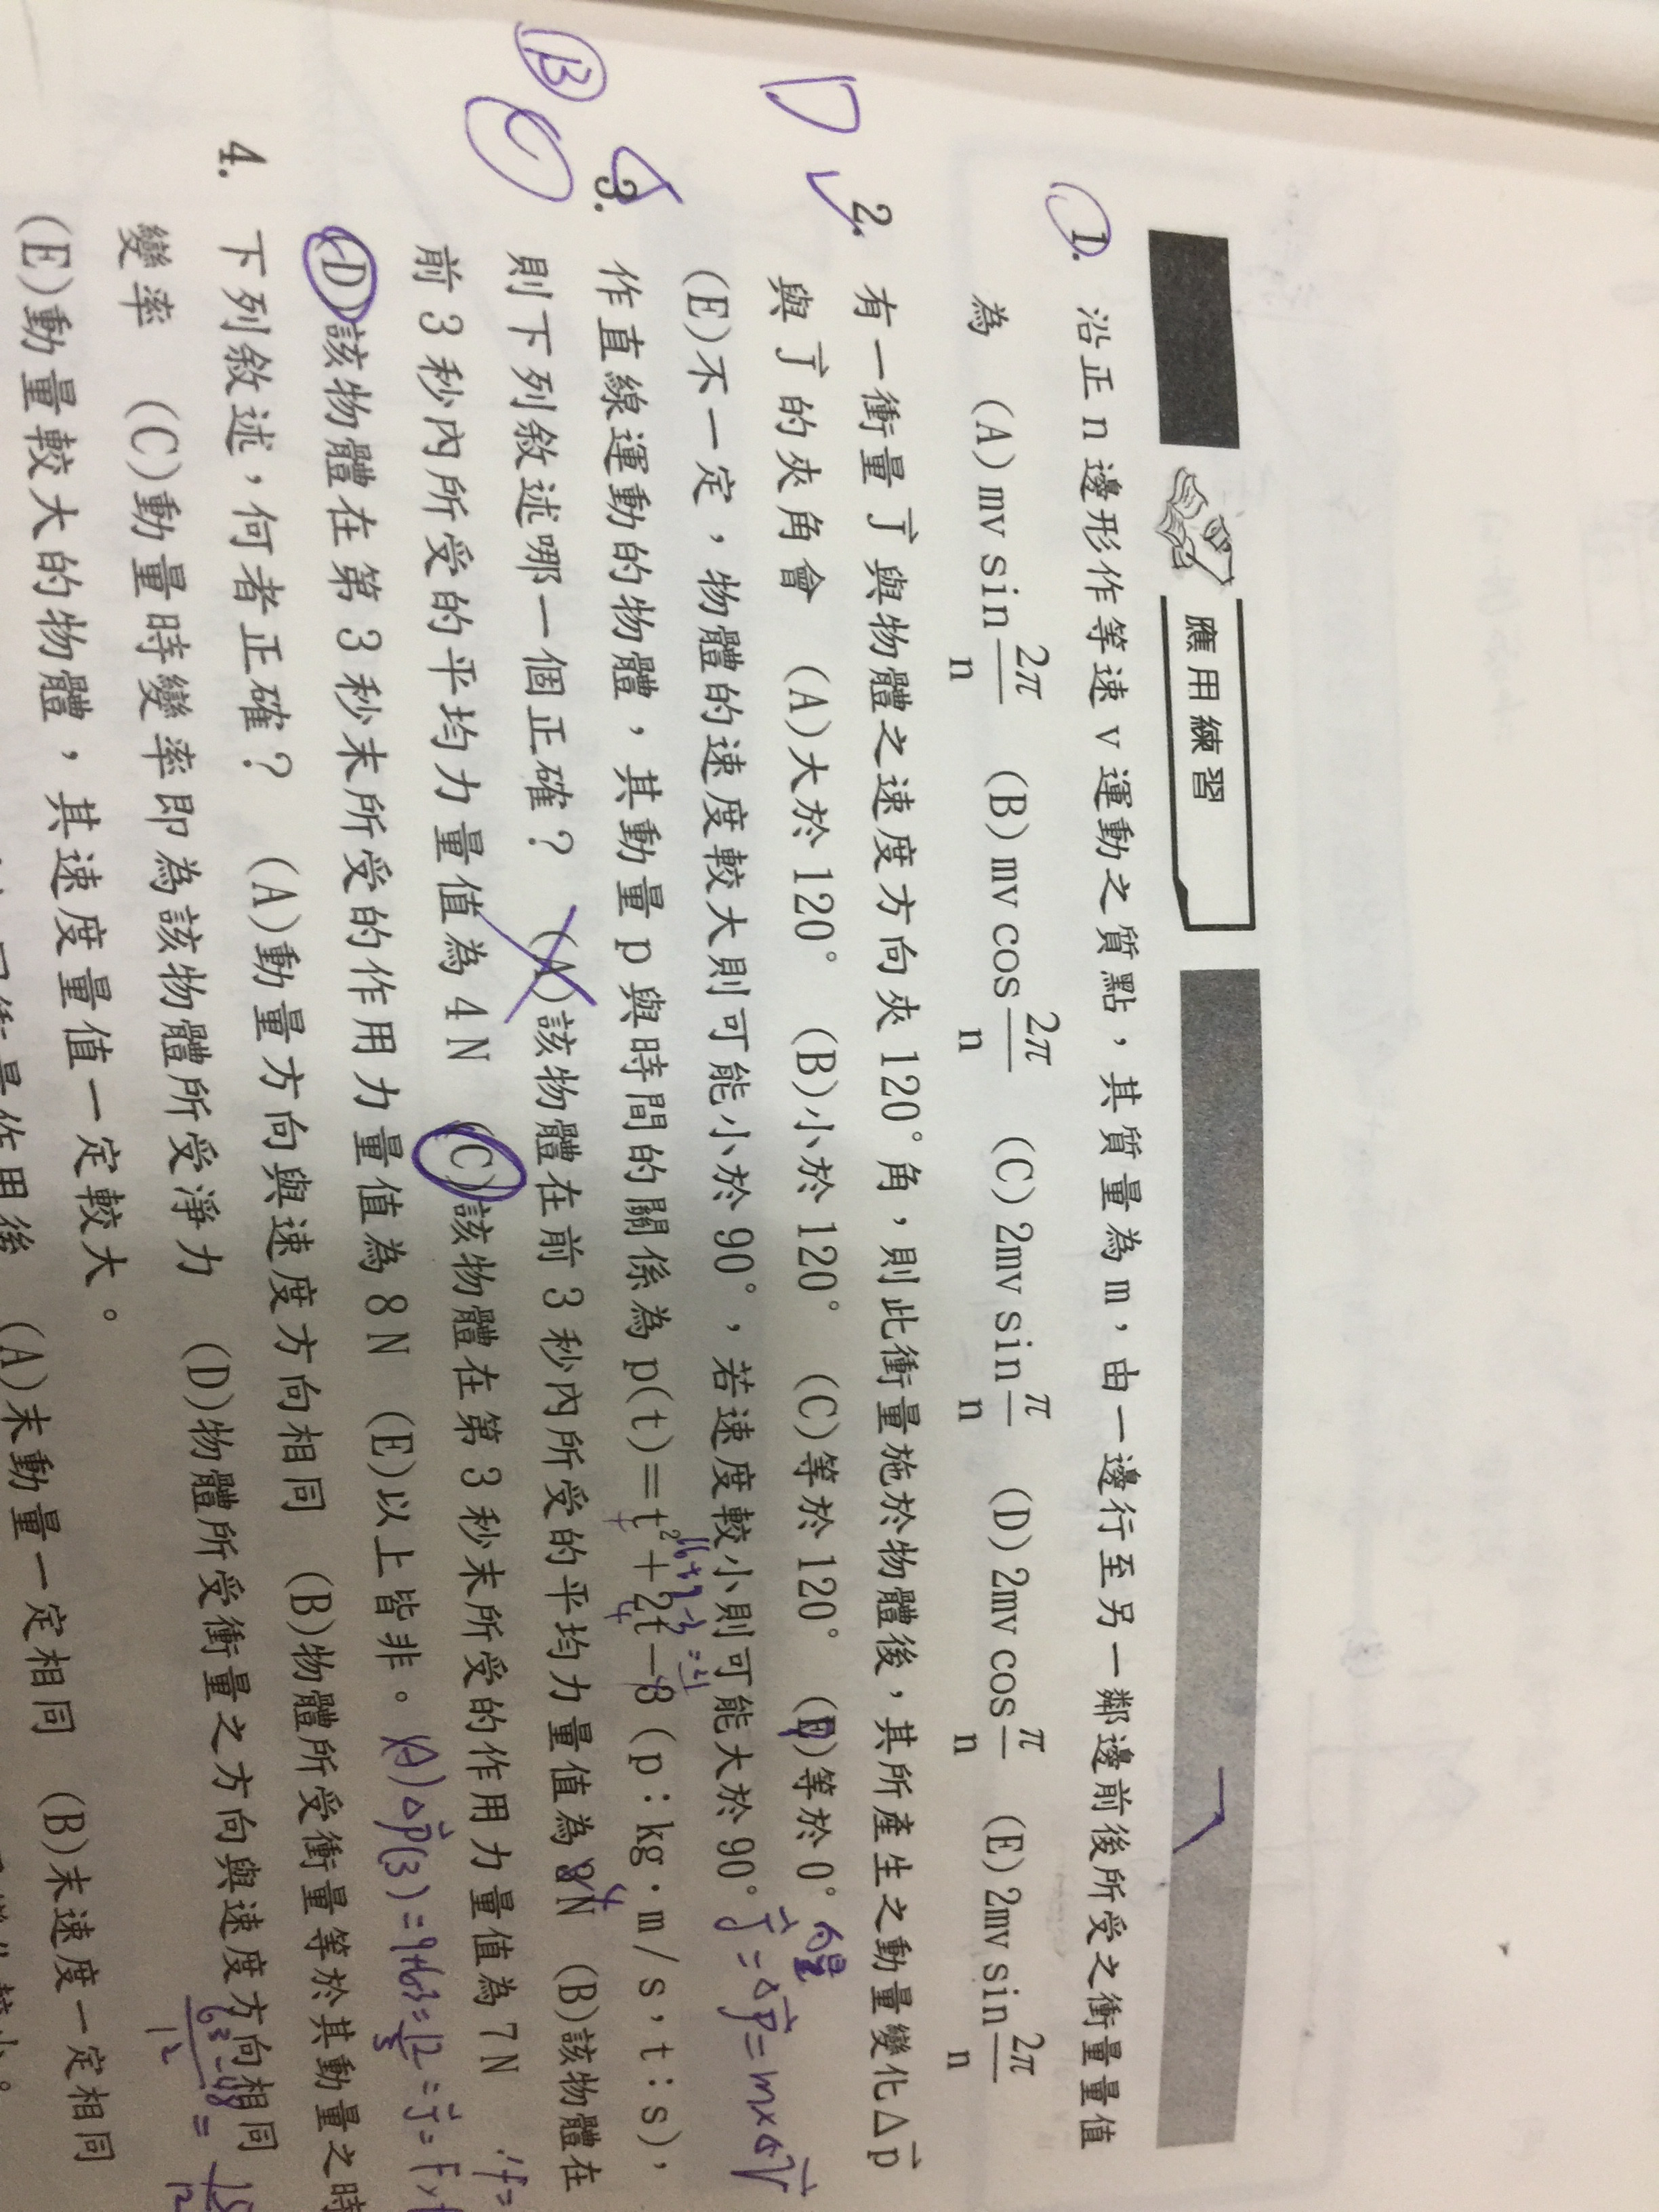 應用練習
1. 沿正n邊形作等速v運動之質點，其質量為m，由一邊行至另一鄰邊前後所受之衝量量值
為 (A)mv sin 2π/n (B)mv cos 2π/n (C)2mv sin π/n (D)2mv cos π/n (E)2mv sin 2π/n
D
2. 有一衝量J⃗與物體之速度方向夾120°角，則此衝量施於物體後，其所產生之動量變化Δp⃗
與J⃗的夾角會 (A)大於120° (B)小於120° (C)等於120° (D)等於0°
(E)不一定，物體的速度較大則可能小於90°，若速度較小則可能大於90° J⃗=Δp⃗=m×ΔV⃗
3. 作直線運動的物體，其動量p與時間的關係為p(t)=t²+2t-3(p：kg·m/s，t：s)，
B
則下列敘述哪一個正確？ (A)該物體在前3秒內所受的平均力量值為8N (B)該物體在
C
前3秒內所受的平均力量值為4N (C)該物體在第3秒末所受的作用力量值為7N
(D)該物體在第3秒末所受的作用力量值為8N (E)以上皆非。
4. 下列敘述，何者正確？ (A)動量方向與速度方向相同 (B)物體所受衝量等於其動量之時
變率 (C)動量時變率即為該物體所受淨力 (D)物體所受衝量之方向與速度方向相同
(E)動量較大的物體，其速度量值一定較大。
(A)末動量一定相同 (B)末速度一定相同